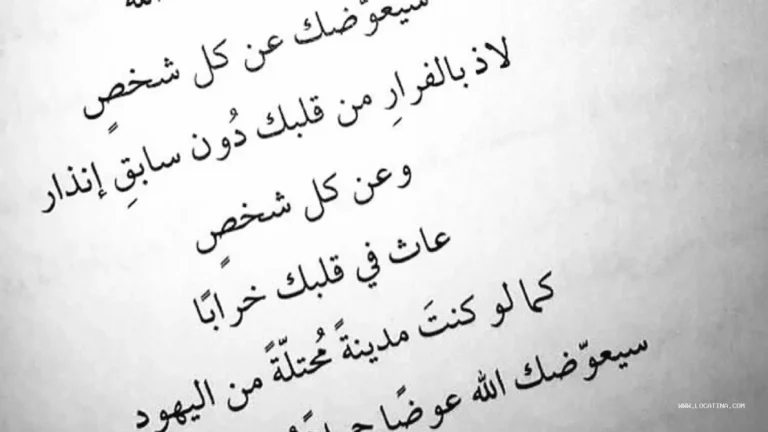 الله
سيعوّضك عن كل شخصٍ
لاذ بالفرارِ من قلبك دُون سابقِ إنذار
وعن كل شخصٍ
عاث في قلبك خرابًا
كما لو كنتَ مدينةً مُحتلّةً من اليهود
سيعوّضك الله عوضًا
WWW.LOCATINA.COM